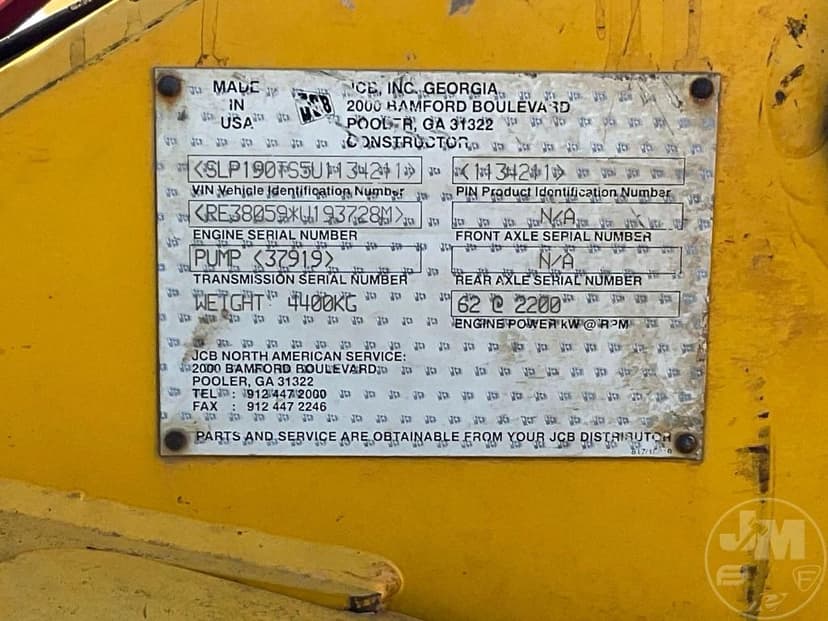 MADE
IN
USA
JCB
JCB, INC. GEORGIA
2000 BAMFORD BOULEVARD
POOLER, GA 31322
CONSTRUCTOR
<SLP190TS5U1134211>
VIN Vehicle Identification Number
<1134211>
PIN Product Identification Number
<RE38059*U193728M>
ENGINE SERIAL NUMBER
N/A
FRONT AXLE SERIAL NUMBER
PUMP <37919>
TRANSMISSION SERIAL NUMBER
N/A
REAR AXLE SERIAL NUMBER
WEIGHT 4400KG
62 @ 2200
ENGINE POWER kW @ RPM
JCB NORTH AMERICAN SERVICE:
2000 BAMFORD BOULEVARD,
POOLER, GA 31322
TEL : 912 447 2000
FAX : 912 447 2246
PARTS AND SERVICE ARE OBTAINABLE FROM YOUR JCB DISTRIBUTOR
JM